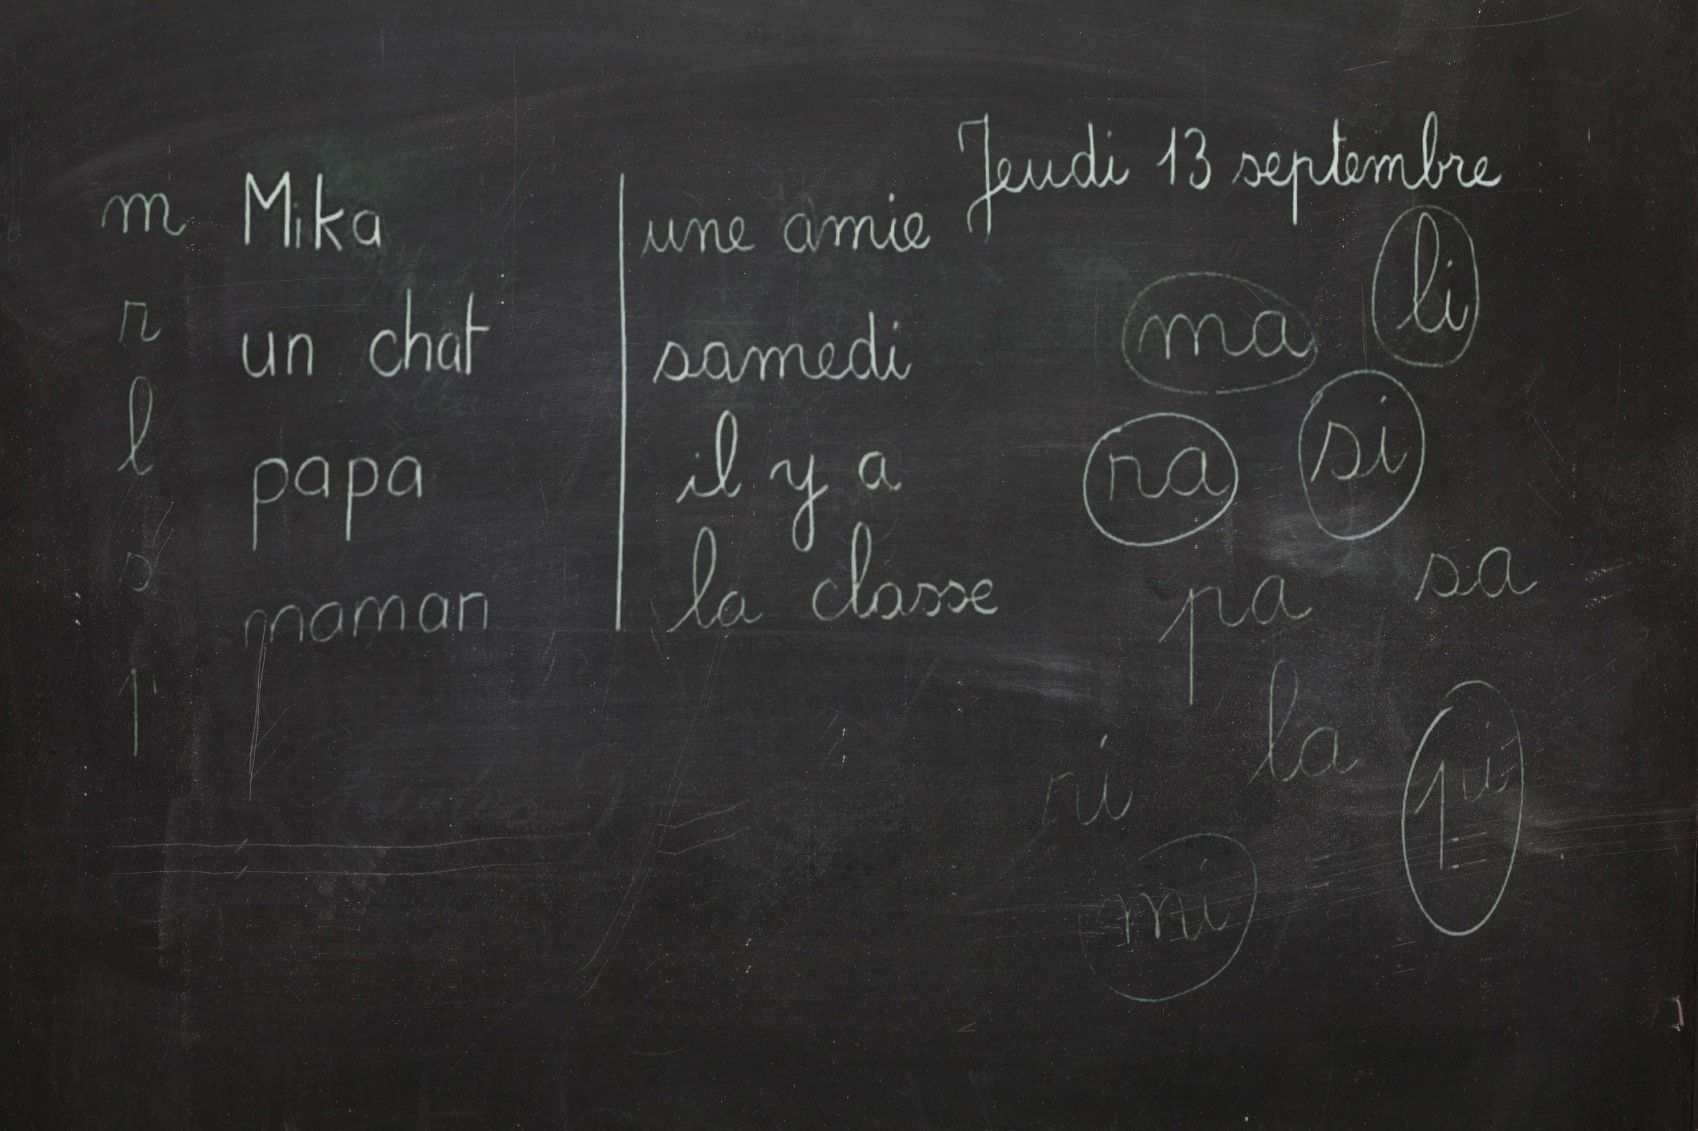 Jeudi 13 septembre
m Mika une amie
r un chat samedi
l papa il y a
s maman la classe
p
ma li
ra si
pa sa
ri la pi
mi